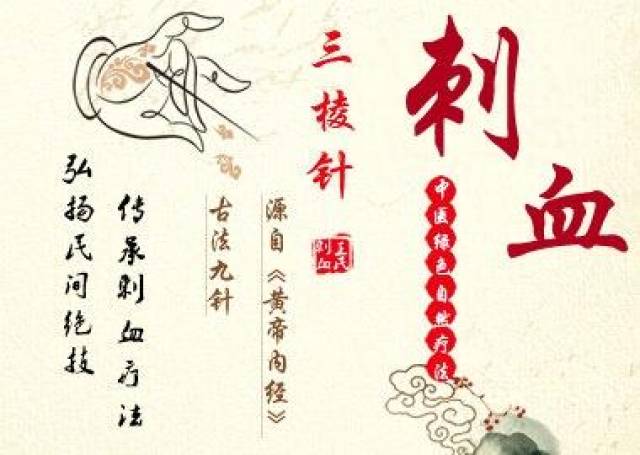 刺血
中医绿色自然疗法
三棱针
王氏刺血
源自《黄帝内经》
古法九针
传承刺血疗法
弘扬民间绝技